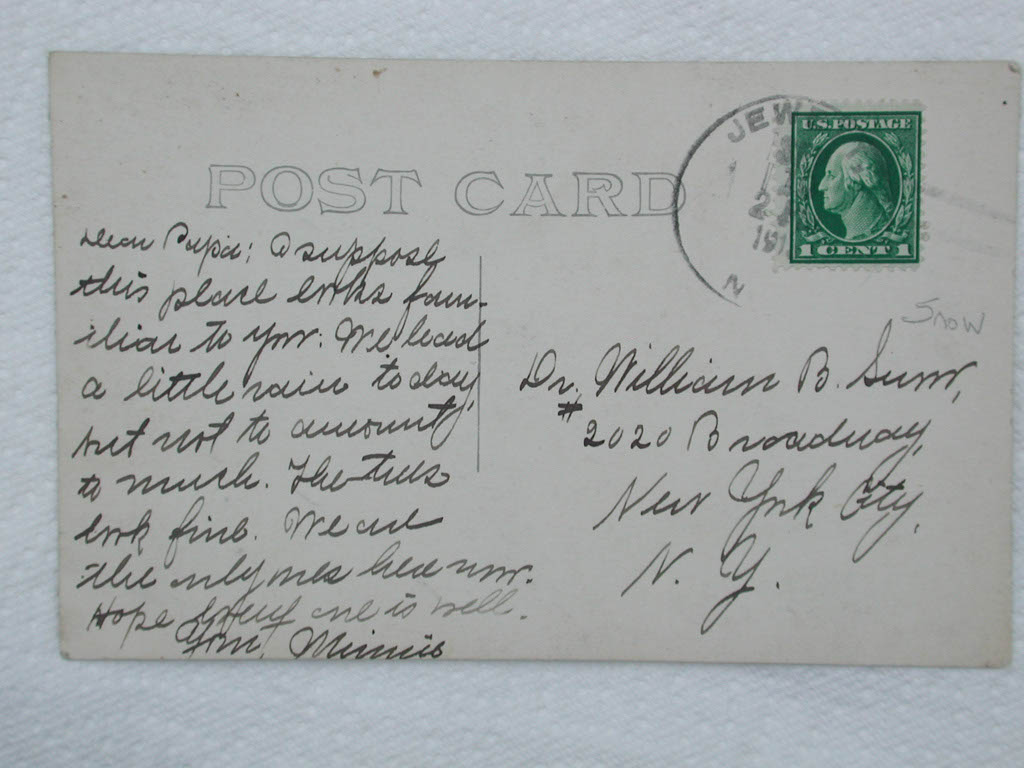 POST CARD
JEW
U.S. POSTAGE
1 CENT 1
Snow
Dear Papa; I suppose
this place looks fam-
iliar to you. We had
a little rain today,
but not to amount
to much. The trees
look fine. We are
the only ones here now.
Hope every one is well.
Your, Minnie
Dr. William B.
# 2020 Broadway,
New York City,
N. Y.